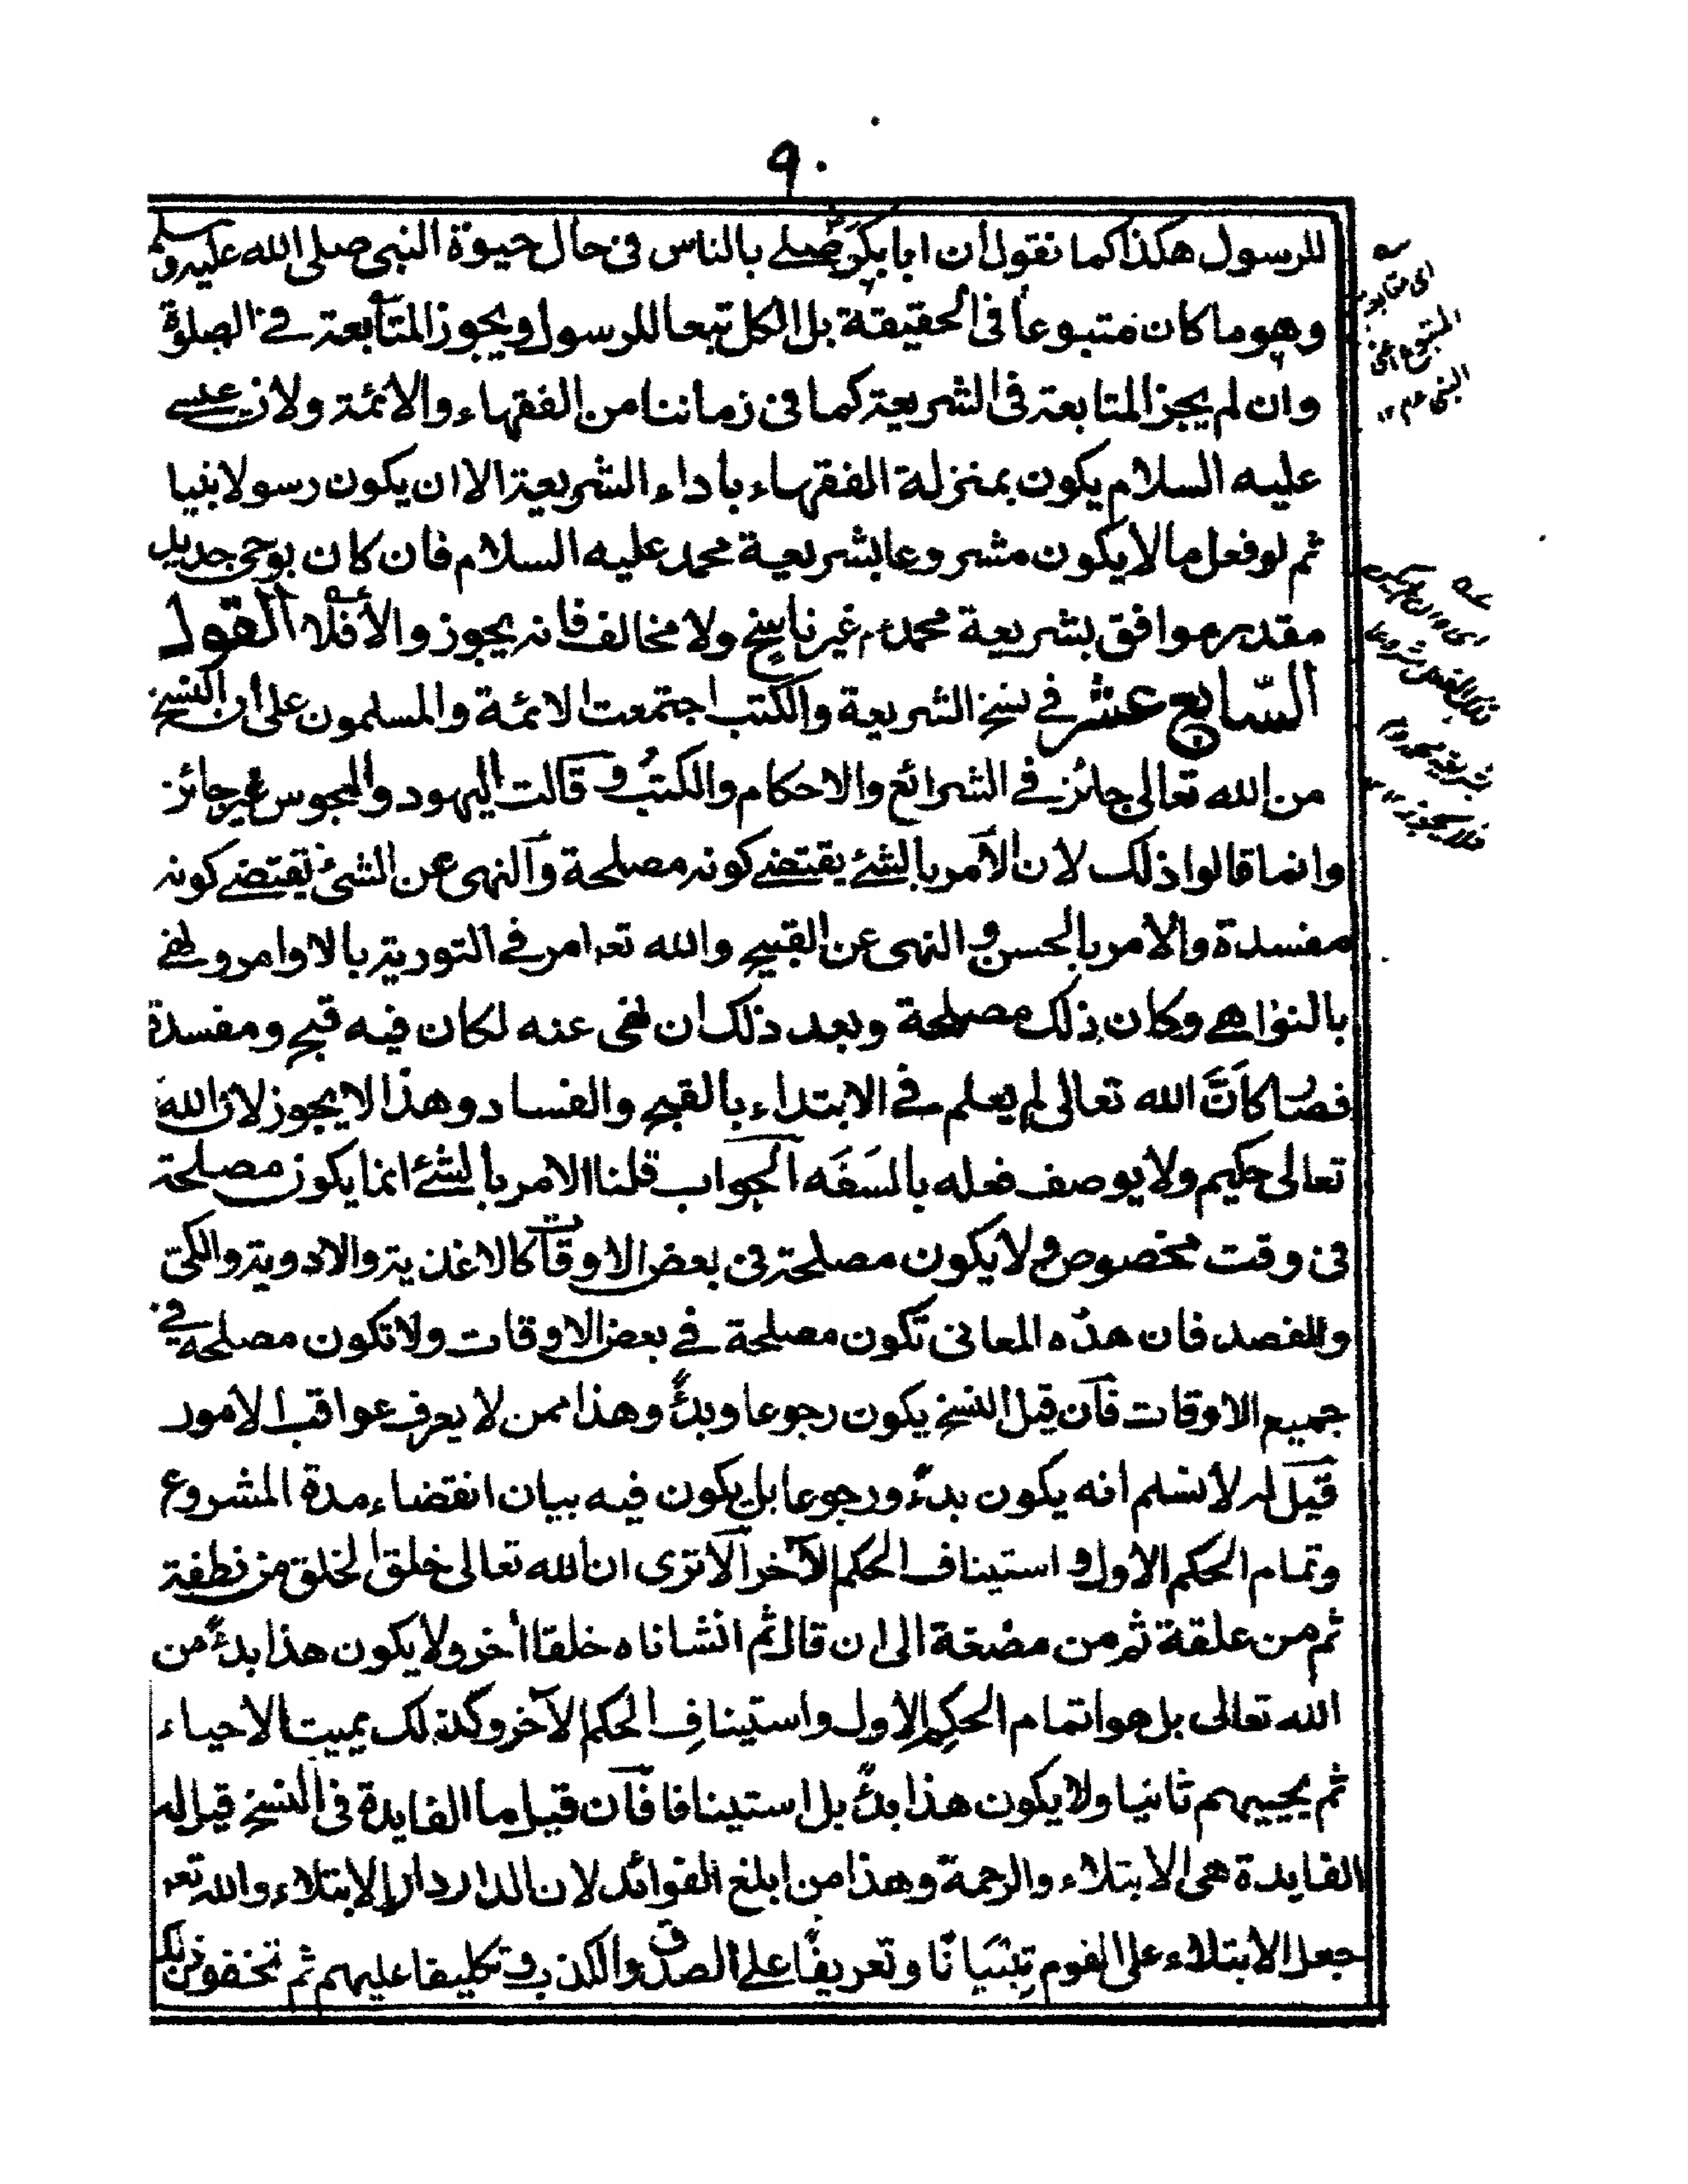 ٩٠
للرسول هكذا كما نقول ان ابا بكر صلے بالناس فى حال حيوة النبى صلى الله عليه وسلم
وهو ما كان متبوعا فى الحقيقة بل الكل تبعا للرسول ويجوز المتابعة فے الصلوة
وان لم يجز المتابعة فى الشريعة كما فى زماننا من الفقهاء والائمة ولان عيسے
عليه السلام يكون بمنزلة الفقهاء باداء الشريعة الا ان يكون رسولا نبيا
ثم لو فعل ما لا يكون مشروعا بشريعة محمد عليه السلام فان كان بوحى جديد
مقدر موافق بشريعة محمدؑ م غير ناسخ ولا مخالف فانه يجوز والا فلا القول
السّابع عشر فے نسخ الشريعة والكتب اجتمعت الائمة والمسلمون على ان النسخ
من الله تعالى جائز فے الشرائع والاحكام والكتب وقالت اليهود والمجوس غير جائز
وانما قالوا ذلك لان الامر بالشئ يقتضے كونه مصلحة والنهى عن الشئ يقتضے كونه
مفسدة والامر بالحسن والنهى عن القبيح والله تعہ امر فے التورية بالاوامر ونهى
بالنواهے وكان ذلك مصلحة وبعد ذلك ان نهى عنه لكان فيه قبح ومفسدة
فصار كَاَنَّ الله تعالى لم يعلم فے الابتداء بالقبح والفساد وهذا لا يجوز لان الله
تعالى حكيم ولا يوصف فعله بالسَفَه الجواب قلنا الامر بالشئ انما يكون مصلحة
فى وقت مخصوص ولا يكون مصلحة فى بعض الاوقات كالاغذية والادوية والكى
والفصد فان هذه المعانى تكون مصلحة فے بعض الاوقات ولا تكون مصلحة فے
جميع الاوقات فان قيل النسخ يكون رجوعا وبدءً وهذا ممن لا يعرف عواقب الامور
قيل له لا نسلم انه يكون بدءً ورجوعا بل يكون فيه بيان انقضاء مدة المشروع
وتمام الحكم الاول واستيناف الحكم الآخر الا ترى ان الله تعالى خلق الخلق من نطفة
ثم من علقة ثم من مضغة الى ان قال ثم انشاناه خلقا أخر ولا يكون هذا بدءً من
الله تعالى بل هو اتمام الحكم الاول واستيناف الحكم الآخر وكذلك يميت الاحياء
ثم يحييهم ثانيا ولا يكون هذا بدءً بل استينافا فان قيل ما الفايدة فى النسخ قيل له
الفايدة هى الابتلاء والرحمة وهذا من ابلغ الفوائد لان الدار دار الابتلاء والله تعہ
جعل الابتلاء على القوم تِبْيَانًا وتعريفًا على الصدق والكذب وتكليفا عليهم ثم تخفون